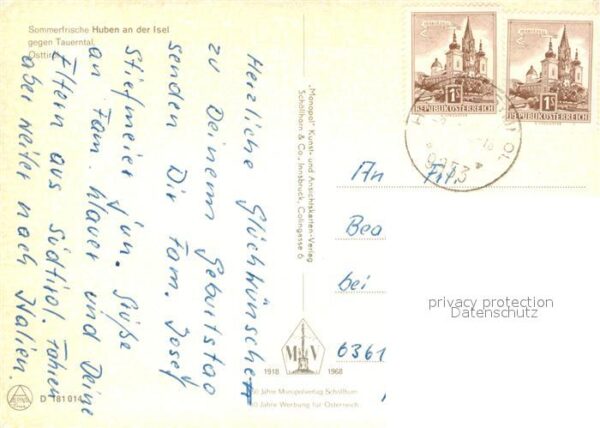 Sommerfrische Huben an der Isel
gegen Tauerntal,
Osttirol
Herzliche Glückwünsche
zu Deinem Geburtstag
senden Dir Fam. Josef
Stiefmeier jun. Grüße
an Fam. Klauer und Deine
Eltern aus Südtirol. Fahren
aber weiter nach Italien.
"Monopol" Kunst- und Ansichtskarten-Verlag
Schöllhorn & Co., Innsbruck, Colingasse 6
REPUBLIK ÖSTERREICH
REPUBLIK ÖSTERREICH
An Frl.
Bea
bei
6361
privacy protection
Datenschutz
M V
1918 1968
50 Jahre Monopolverlag Schöllhorn
50 Jahre Werbung für Österreich
D 181014